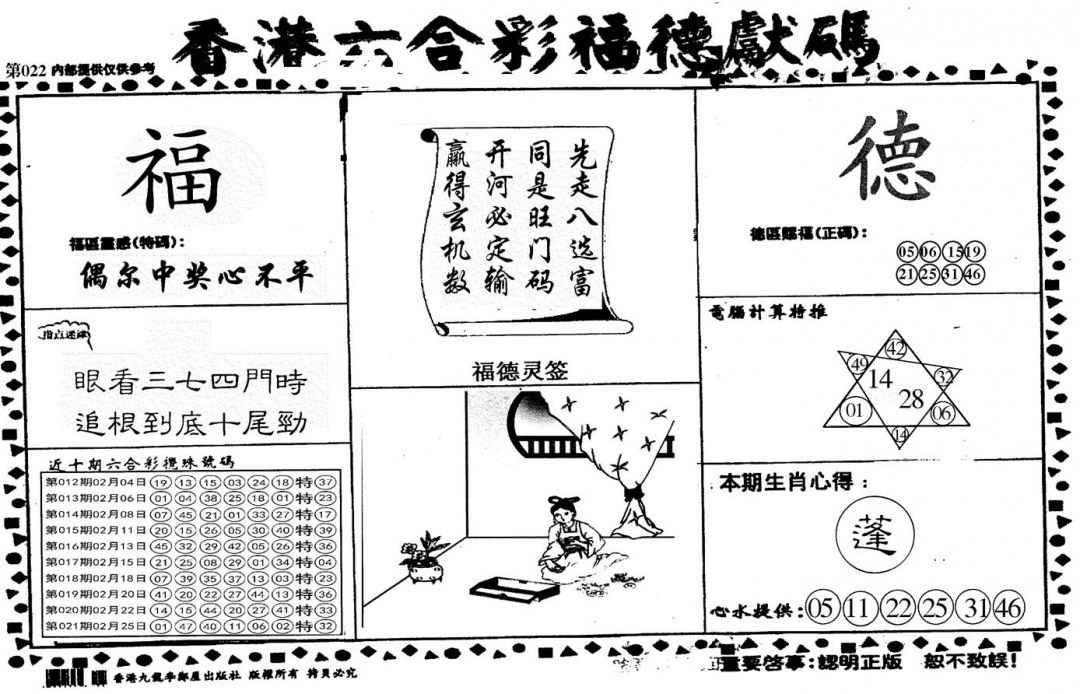 香港六合彩福德獻碼
第022 内部提供仅供参考
福
福區靈感(特碼):
偶尔中奖心不平
指点迷津
眼看三七四門時
追根到底十尾勁
近十期六合彩攪珠號碼
第012期02月04日 19 13 15 03 24 18 特 37
第013期02月06日 01 04 38 25 18 01 特 23
第014期02月08日 07 45 21 01 33 27 特 17
第015期02月11日 20 15 26 05 30 40 特 39
第016期02月13日 45 32 29 42 05 26 特 36
第017期02月15日 21 25 08 29 01 34 特 04
第018期02月18日 07 39 35 37 13 03 特 23
第019期02月20日 41 20 22 27 44 13 特 36
第020期02月22日 14 15 44 20 27 41 特 33
第021期02月25日 01 47 40 11 06 02 特 32
先走八选富
同是旺门码
开河必定输
赢得玄机数
福德灵签
德
德區賜福(正碼):
05 06 15 19
21 25 31 46
電腦計算特推
42
49
32
14
28
01
06
14
本期生肖心得:
蓬
心水提供: 05 11 22 25 31 46
香港九龍李鄭屋出版社 版權所有 拷貝必究
重要啓事:認明正版 恕不致誤!